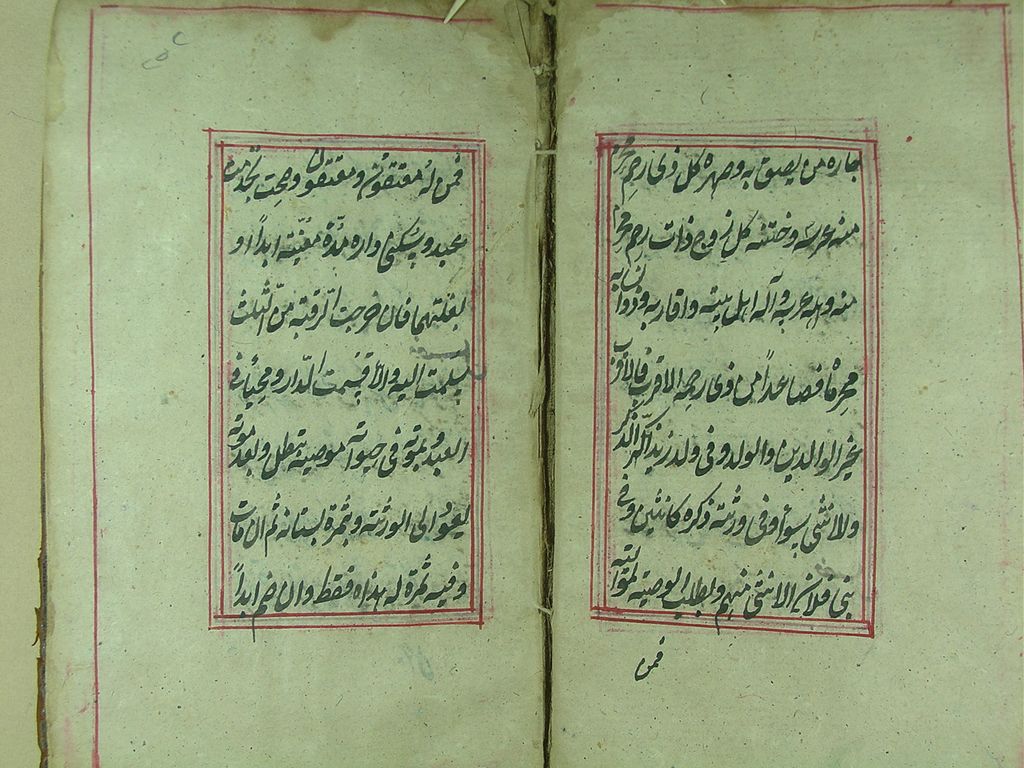 جاره من يصق به وصهره كل ذى رحم محرم
منه عرسه وختنه كل زوج ذات رحم محرم
منه واهله عرسه وآله اهل بيته واقاربه وذوانسابه
محرماه فصاعداً من ذى رحمه الاقرب فالاقرب
غير الوالدين والولد وفى ولد زيد الذكر
والانثى سواء وفى ورثته ذكره كانثيين وفى
بنى فلان الانثى منهم وبطلب الوصية لمواليه
فمن
فمن له معتقون ومعتقون وصحت بخدمة
عبده وسكنى داره مدة معينة ابداً او
بغلتهما فان خرجت الرقبة من الثلث
سلمت اليه والا قسمت الدار ويجبأن فى
العبد وبموته فى حيوة موصيه تبطل وبعد موته
يعود الى الورثة وبثمرة بستانه ثم ان مات
وفيه ثمرة له هذاه فقط وان ضم ابداً